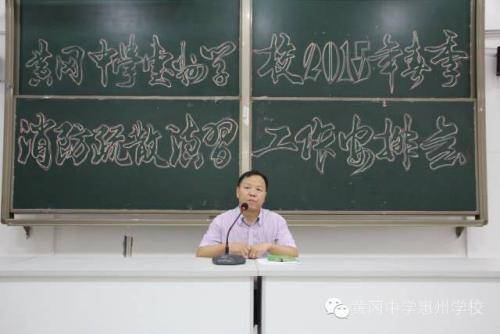 黄冈中学惠州学校2015年春季
消防疏散演习工作安排会
黄冈中学惠州学校